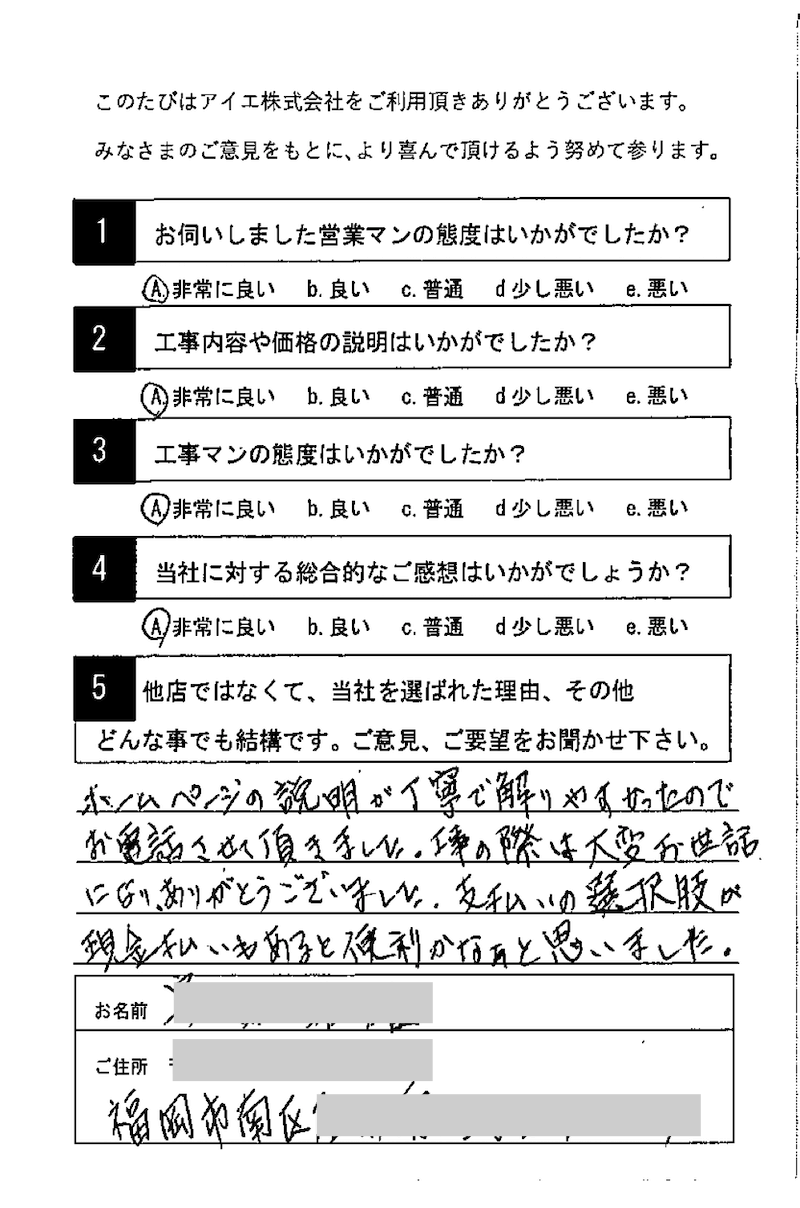 このたびはアイエ株式会社をご利用頂きありがとうございます。
みなさまのご意見をもとに、より喜んで頂けるよう努めて参ります。
1 お伺いしました営業マンの態度はいかがでしたか？
A. 非常に良い b. 良い c. 普通 d 少し悪い e. 悪い
2 工事内容や価格の説明はいかがでしたか？
A. 非常に良い b. 良い c. 普通 d 少し悪い e. 悪い
3 工事マンの態度はいかがでしたか？
A. 非常に良い b. 良い c. 普通 d 少し悪い e. 悪い
4 当社に対する総合的なご感想はいかがでしょうか？
A. 非常に良い b. 良い c. 普通 d 少し悪い e. 悪い
5 他店ではなくて、当社を選ばれた理由、その他
どんな事でも結構です。ご意見、ご要望をお聞かせ下さい。
ホームページの説明が丁寧で解りやすかったので
お電話させて頂きました。工事の際は大変お世話
になり、ありがとうございました。支払いの選択肢が
現金払いもあると便利かなぁと思いました。
お名前
ご住所 〒
福岡市南区